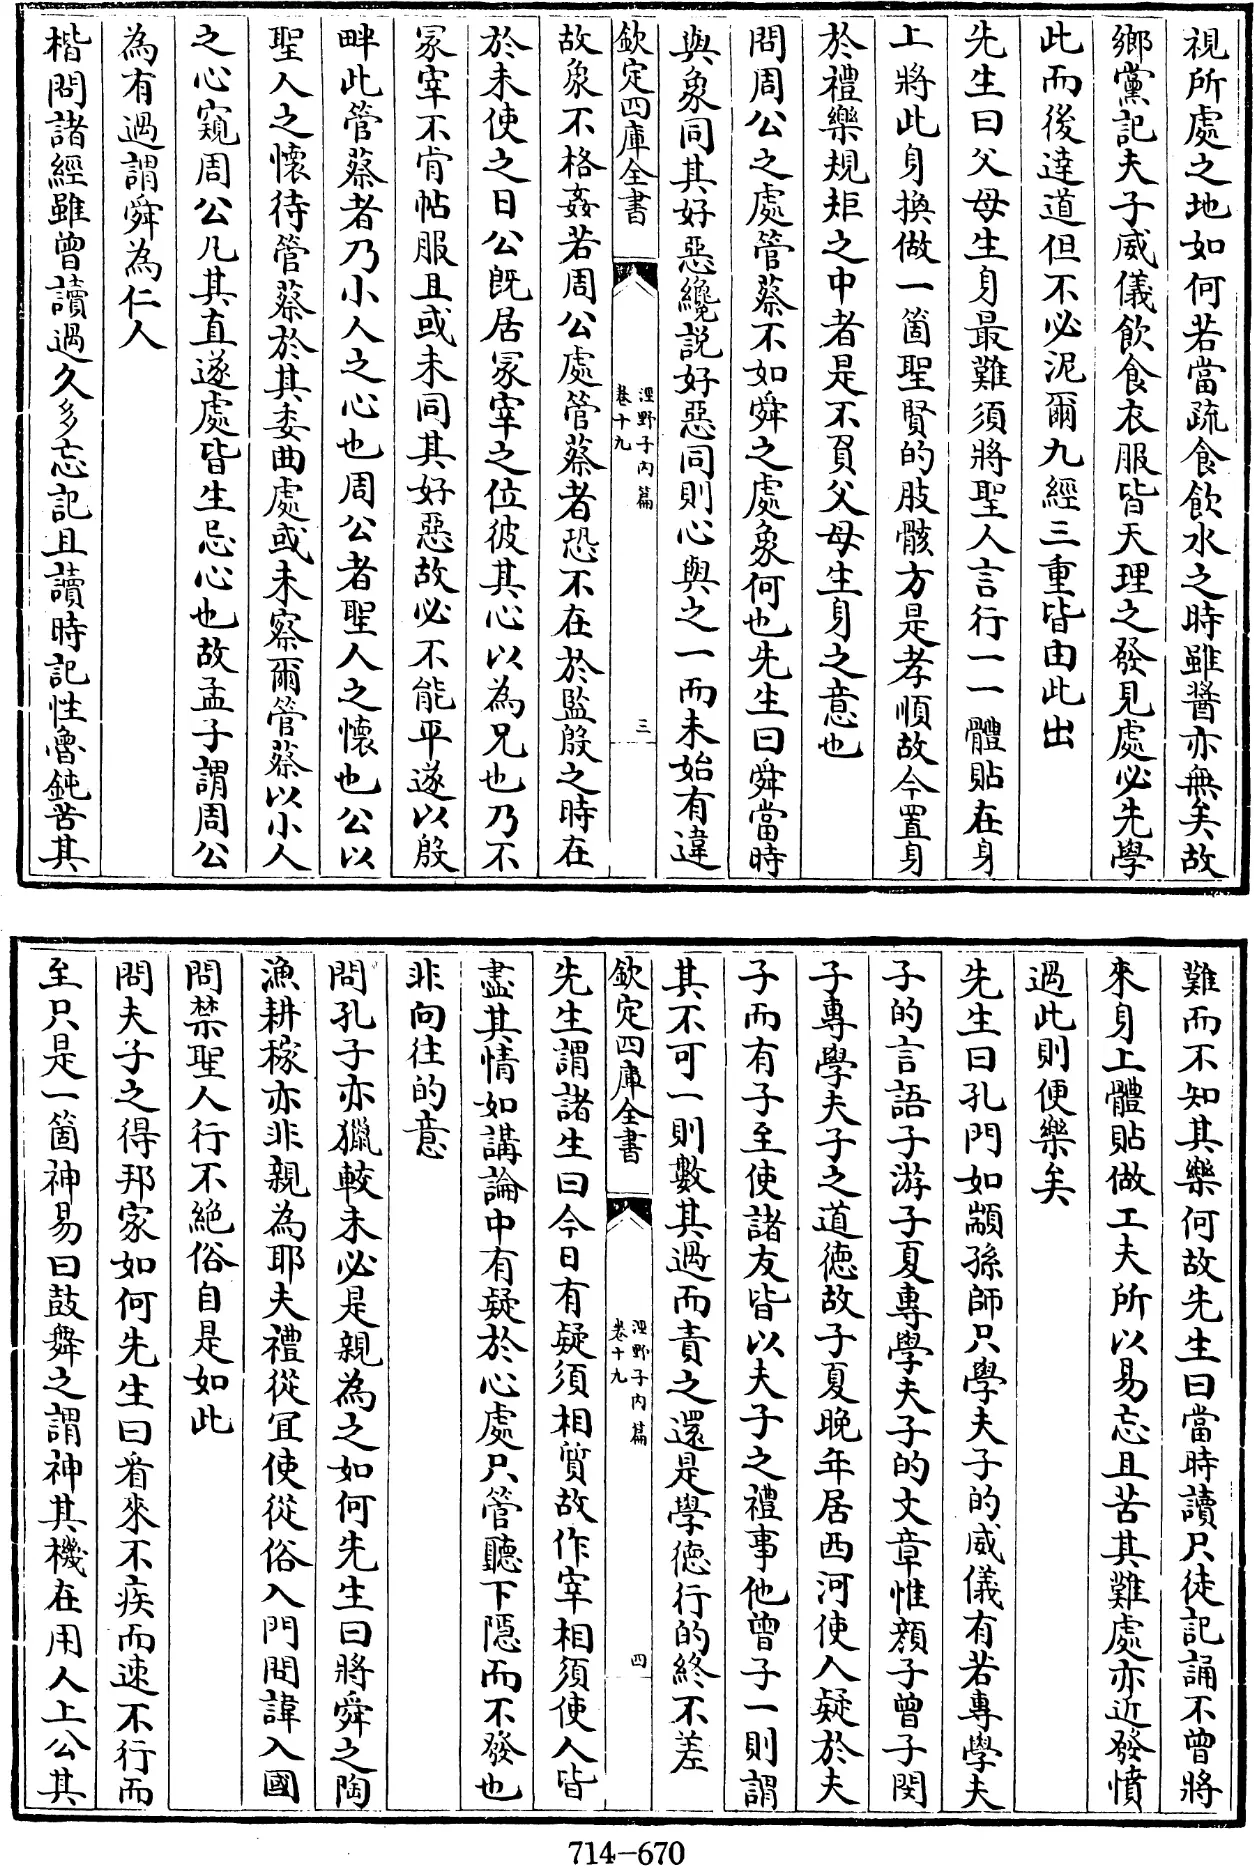 視所處之地如何若當疏食飲水之時雖醬亦無矣故
鄉黨記夫子威儀飲食衣服皆天理之發見處必先學
此而後達道但不必泥爾九經三重皆由此出
先生曰父母生身最難須將聖人言行一一體貼在身
上將此身換做一箇聖賢的肢骸方是孝順故今置身
於禮樂規矩之中者是不負父母生身之意也
問周公之處管蔡不如舜之處象何也先生曰舜當時
與象同其好惡纔説好惡同則心與之一而未始有違
欽定四庫全書
涇野子内篇
卷十九
三
故象不格姦若周公處管蔡者恐不在於監殷之時在
於未使之日公旣居冢宰之位彼其心以為兄也乃不
冢宰不肯帖服且或未同其好惡故必不能平遂以殷
畔此管蔡者乃小人之心也周公者聖人之懷也公以
聖人之懷待管蔡於其委曲處或未察爾管蔡以小人
之心窺周公凡其直遂處皆生忌心也故孟子謂周公
為有過謂舜為仁人
楷問諸經雖曾讀過久多忘記且讀時記性魯鈍苦其
難而不知其樂何故先生曰當時讀只徒記誦不曾將
來身上體貼做工夫所以易忘且苦其難處亦近發憤
過此則便樂矣
先生曰孔門如顓孫師只學夫子的威儀有若專學夫
子的言語子游子夏專學夫子的文章惟顏子曾子閔
子專學夫子之道徳故子夏晚年居西河使人疑於夫
子而有子至使諸友皆以夫子之禮事他曾子一則謂
其不可一則數其過而責之還是學徳行的終不差
欽定四庫全書
涇野子内篇
卷十九
四
先生謂諸生曰今日有疑須相質故作宰相須使人皆
盡其情如講論中有疑於心處只管聽下隱而不發也
非向往的意
問孔子亦獵較未必是親為之如何先生曰將舜之陶
漁耕稼亦非親為耶夫禮從宜使從俗入門問諱入國
問禁聖人行不絶俗自是如此
問夫子之得邦家如何先生曰看來不疾而速不行而
至只是一箇神易曰鼓舞之謂神其機在用人上公其
714-670